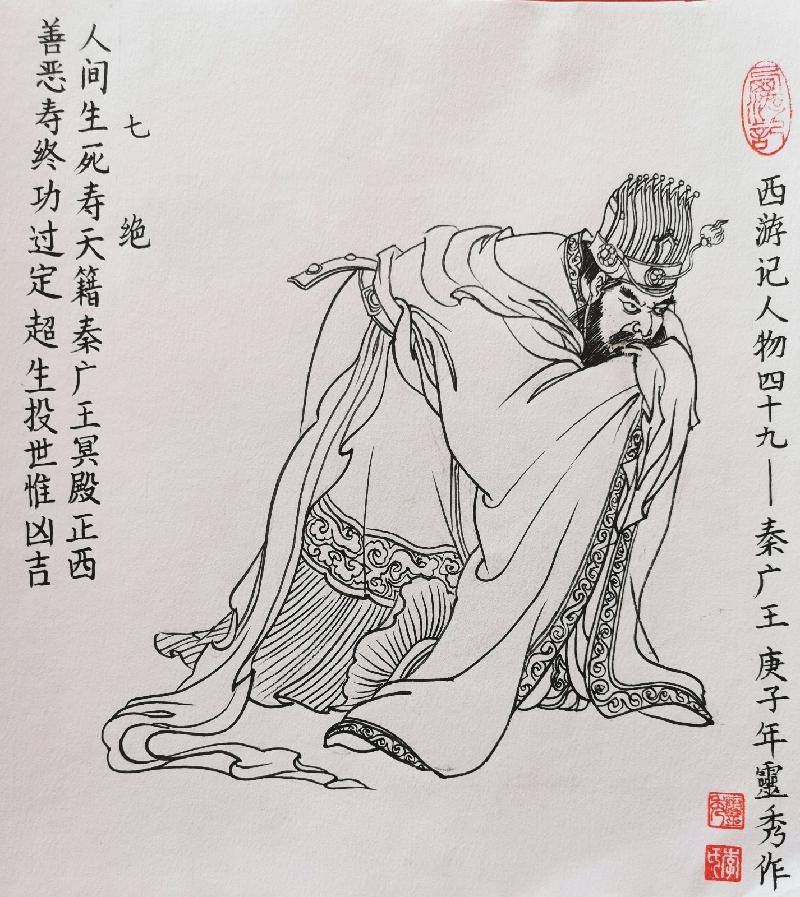 西游记人物四十九—秦广王 庚子年靈秀作
靈秀
李氏
七绝
人间生死寿夭籍秦广王冥殿正西
善恶寿终功过定超生投世惟凶吉